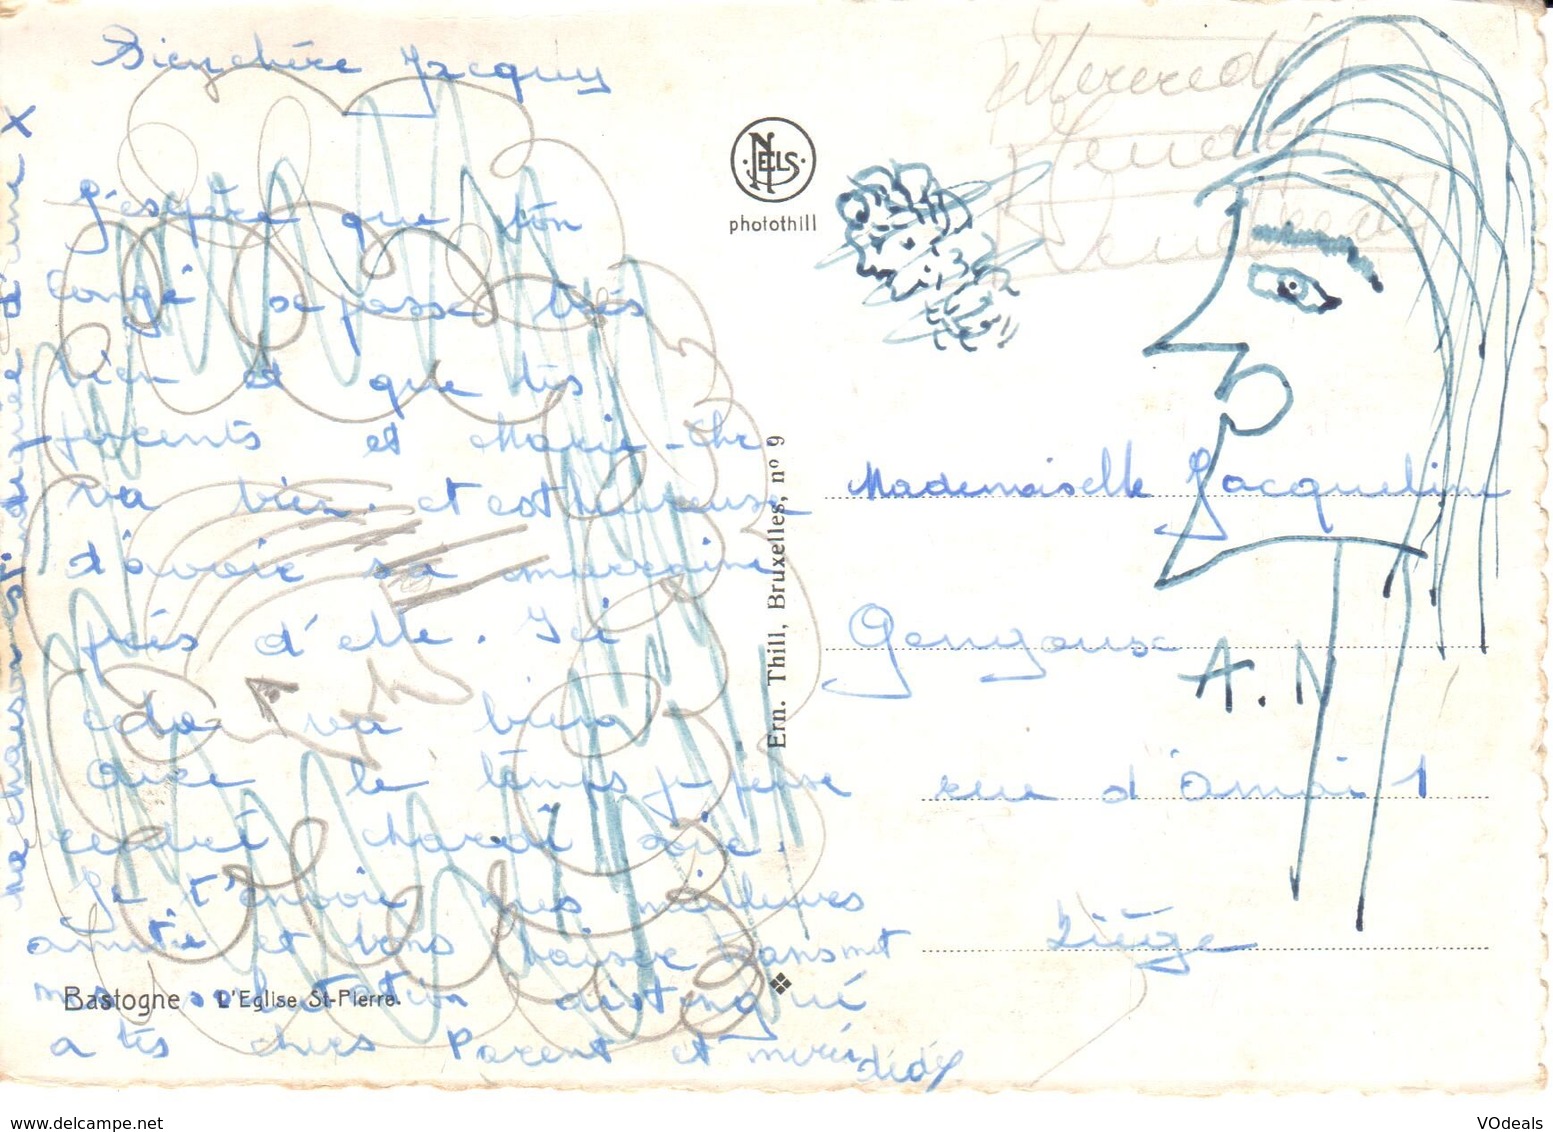 Bien chère Jacquy
J'espère que ton
congé se passe très
bien et que tes
parents et Marie-Chr.
va bien. et est heureuse
d'avoir sa marraine
près d'elle. Ici
cela va bien
avec le temps je pense
Je t'envoie mes meilleures
amitié et bons baiser transmet
mes salutation distingué
a tes chers Parent et merci
dédy
ma chanson est
d'une X
Bastogne L'Eglise St-Pierre.
NELS
photothill
Ern. Thill, Bruxelles, nº 9
Mercredi
Mademoiselle Jacqueline
rue d'Amai 1
Liège
A.N
www.delcampe.net
VOdeals